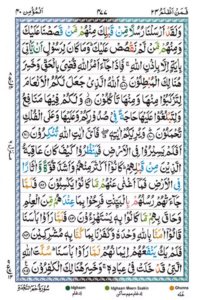 فَمَنْ اَظْلَمُ ٢٤ ٤٧٧ اَلْمُؤْمِن ٤٠
وَلَقَدْ اَرْسَلْنَا رُسُلًا مِّنْ قَبْلِكَ مِنْهُمْ مَّنْ قَصَصْنَا عَلَيْكَ
وَمِنْهُمْ مَّنْ لَّمْ نَقْصُصْ عَلَيْكَ وَمَا كَانَ لِرَسُوْلٍ اَنْ يَّاْتِيَ
بِاٰيَةٍ اِلَّا بِاِذْنِ اللّٰهِ فَاِذَا جَآءَ اَمْرُ اللّٰهِ قُضِيَ بِالْحَقِّ وَخَسِرَ
هُنَالِكَ الْمُبْطِلُوْنَ اَللّٰهُ الَّذِيْ جَعَلَ لَكُمُ الْاَنْعَامَ
لِتَرْكَبُوْا مِنْهَا وَمِنْهَا تَاْكُلُوْنَ وَلَكُمْ فِيْهَا مَنَافِعُ
وَلِتَبْلُغُوْا عَلَيْهَا حَاجَةً فِيْ صُدُوْرِكُمْ وَعَلَيْهَا وَعَلَى الْفُلْكِ
تُحْمَلُوْنَ وَيُرِيْكُمْ اٰيٰتِهٖ فَاَيَّ اٰيٰتِ اللّٰهِ تُنْكِرُوْنَ
اَفَلَمْ يَسِيْرُوْا فِي الْاَرْضِ فَيَنْظُرُوْا كَيْفَ كَانَ عَاقِبَةُ
الَّذِيْنَ مِنْ قَبْلِهِمْ كَانُوْٓا اَكْثَرَ مِنْهُمْ وَاَشَدَّ قُوَّةً وَّاٰثَارًا
فِي الْاَرْضِ فَمَآ اَغْنٰى عَنْهُمْ مَّا كَانُوْا يَكْسِبُوْنَ فَلَمَّا
جَآءَتْهُمْ رُسُلُهُمْ بِالْبَيِّنٰتِ فَرِحُوْا بِمَا عِنْدَهُمْ مِّنَ الْعِلْمِ
وَحَاقَ بِهِمْ مَّا كَانُوْا بِهٖ يَسْتَهْزِءُوْنَ فَلَمَّا رَاَوْا بَاْسَنَا
قَالُوْٓا اٰمَنَّا بِاللّٰهِ وَحْدَهٗ وَكَفَرْنَا بِمَا كُنَّا بِهٖ مُشْرِكِيْنَ
فَلَمْ يَكُ يَنْفَعُهُمْ اِيْمَانُهُمْ لَمَّا رَاَوْا بَاْسَنَا سُنَّتَ اللّٰهِ
الَّتِيْ قَدْ خَلَتْ فِيْ عِبَادِهٖ وَخَسِرَ هُنَالِكَ الْكٰفِرُوْنَ
Idghaam Idghaam Meem Saakin Ghunna